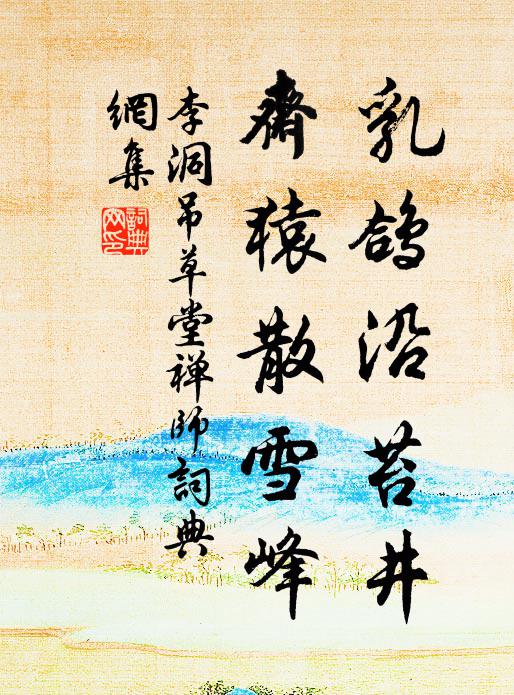 乳鴿沿苔井
齋猿散雪峰
李洞吊草堂禅師詞典
網集
詞典
网印